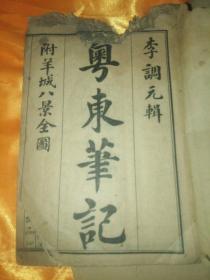 李調元輯
粵東筆記
附羊城八景全圖